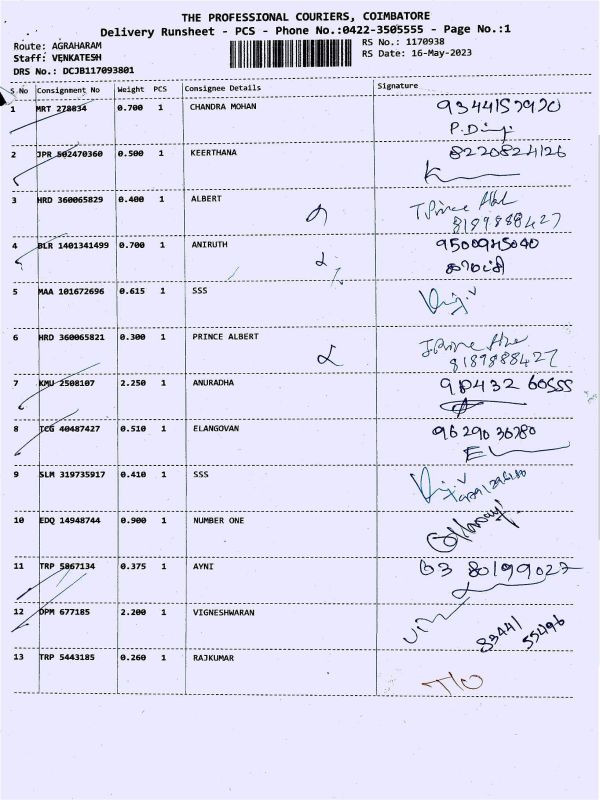 THE PROFESSIONAL COURIERS, COIMBATORE
Delivery Runsheet - PCS - Phone No.:0422-3505555 - Page No.:1
Route: AGRAHARAM RS No.: 1170938
Staff: VENKATESH RS Date: 16-May-2023
DRS No.: DCJB117093801
S No Consignment No Weight PCS Consignee Details Signature
1 MRT 278834 0.700 1 CHANDRA MOHAN
2 JPR 502470360 0.500 1 KEERTHANA 8220824126
3 HRD 360065829 0.400 1 ALBERT
8189888427
4 BLR 1401341499 0.700 1 ANIRUTH 9500945040
5 MAA 101672696 0.615 1 SSS
6 HRD 360065821 0.300 1 PRINCE ALBERT
8189888427
7 KMU 2508107 2.250 1 ANURADHA
8 TCG 40487427 0.510 1 ELANGOVAN
9 SLM 319735917 0.410 1 SSS
10 EDQ 14948744 0.900 1 NUMBER ONE
11 TRP 5867134 0.375 1 AYNI
12 DPM 677185 2.200 1 VIGNESHWARAN
83441
55496
13 TRP 5443185 0.260 1 RAJKUMAR